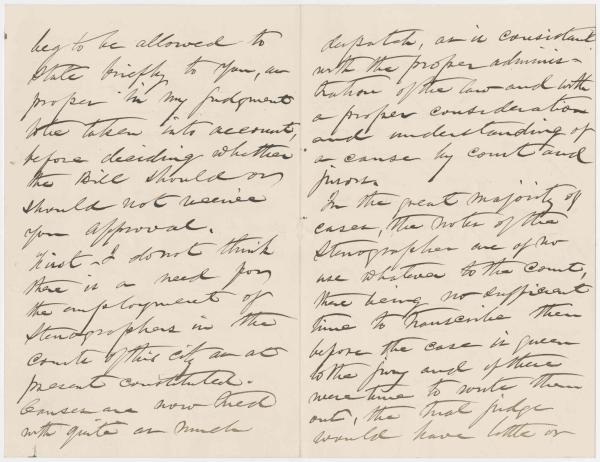 beg to be allowed to
state briefly to you, as
proper in my judgment
to be taken into account,
before deciding whether
the Bill should or
should not receive
your approval.
First - I do not think
there is a need for
the employment of
Stenographers in the
courts of this city as at
present constituted.
Causes are now tried
with quite as much
dispatch, as is consistant
with the proper adminis-
tration of the law and with
a proper consideration
and understanding of
a cause by court and
jurors.
In the great majority of
cases, the notes of the
Stenographer are of no
use whatever to the Court,
there being no sufficient
time to transcribe them
before the case is given
to the jury and if there
were time to write them
out, the trial judge
would have little or